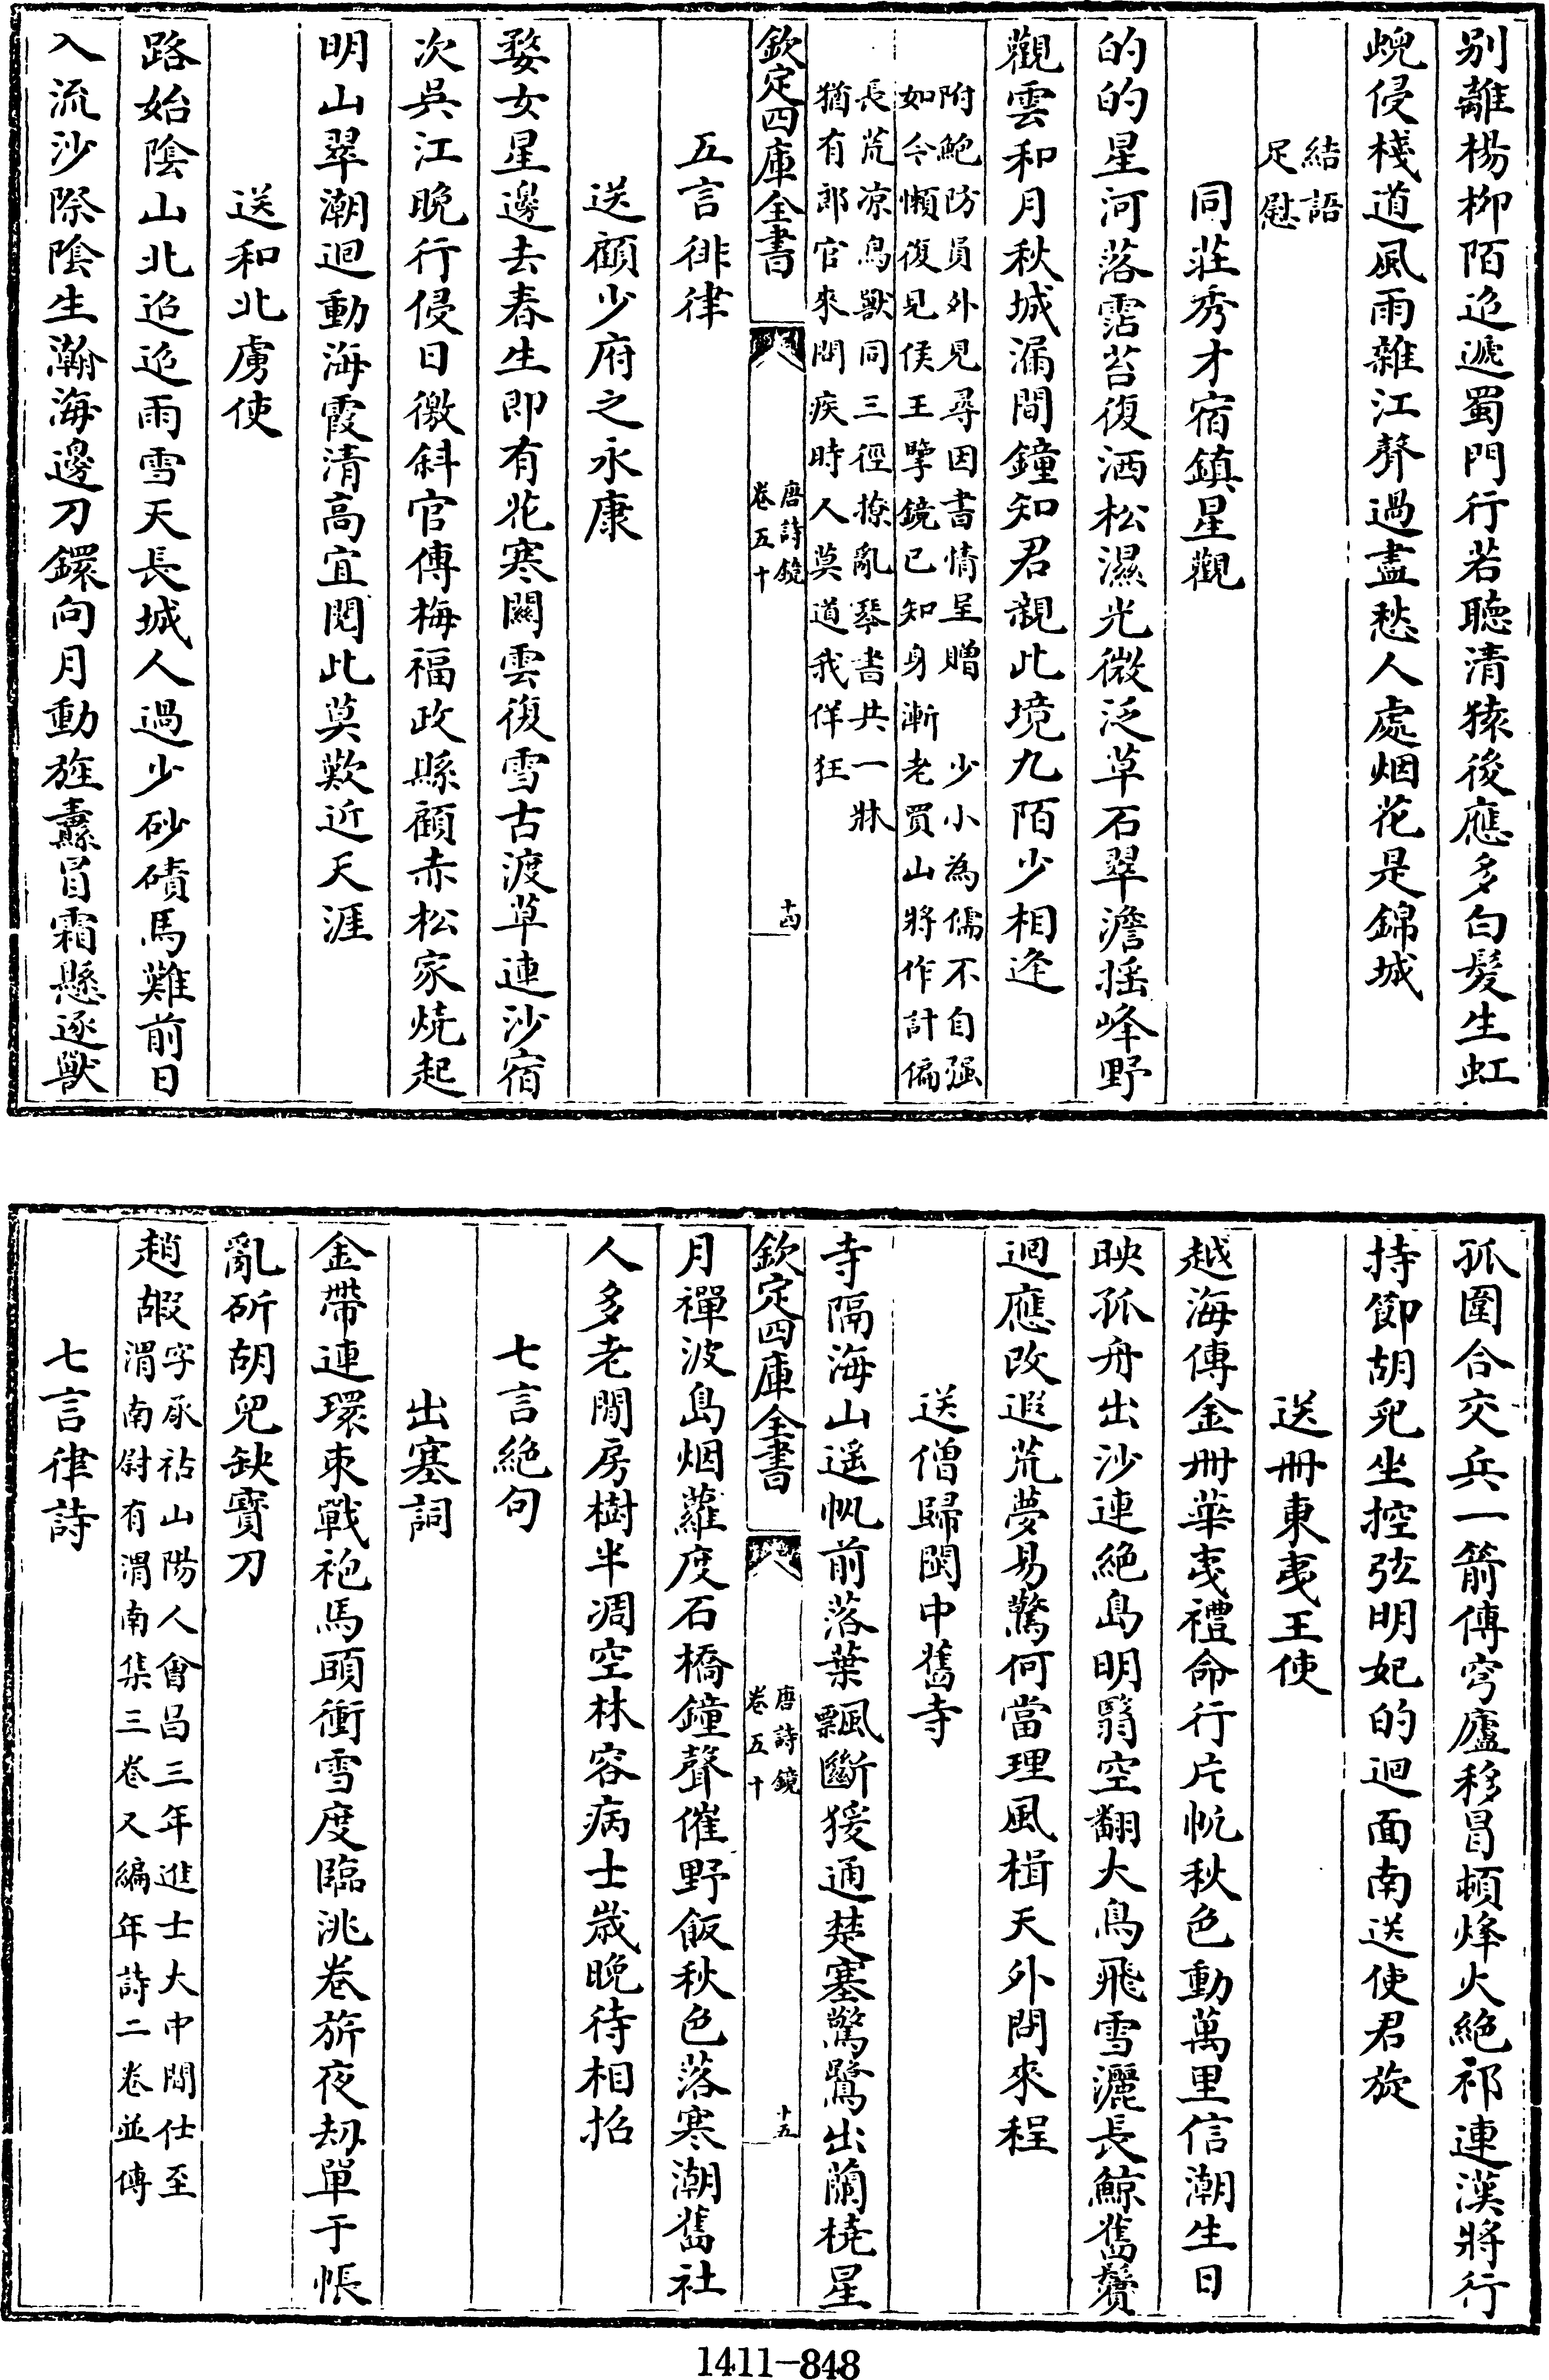 别離楊柳陌迢遞蜀門行若聽清猿後應多白髮生虹
蜺侵棧道風雨雜江聲過盡愁人處烟花是錦城
結語
足慰
同莊秀才宿鎮星觀
的的星河落霑苔復洒松濕光微泛草石翠澹揺峰野
觀雲和月秋城漏間鐘知君親此境九陌少相逢
附鮑防員外見尋因書情呈贈　少小為儒不自强
如今懶復見侯王擥鏡已知身漸老買山將作計偏
長荒凉鳥獸同三徑撩亂琴書共一牀
猶有郎官來問疾時人莫道我佯狂
欽定四庫全書
唐詩鏡
卷五十
十四
五言徘律
送顧少府之永康
婺女星邊去春生即有花寒關雲復雪古渡草連沙宿
次吳江晚行侵日徼斜官傳梅福政縣顧赤松家燒起
明山翠潮迴動海霞清高宜閱此莫歎近天涯
送和北虜使
路始陰山北迢迢雨雪天長城人過少砂磧馬難前日
入流沙際陰生瀚海邊刀鐶向月動旌纛冒霜懸逐獸
孤圍合交兵一箭傳穹廬移冒頓烽火絶祁連漢將行
持節胡兒坐控弦明妃的迴面南送使君旋
送冊東夷王使
越海傳金冊華夷禮命行片帆秋色動萬里信潮生日
映孤舟出沙連絶島明翳空翻大鳥飛雪灑長鯨舊鬢
迴應改遐荒夢易驚何當理風楫天外問來程
送僧歸閩中舊寺
寺隔海山遥帆前落葉飄斷猨通楚塞驚鷺出蘭橈星
欽定四庫全書
唐詩鏡
卷五十
十五
月禪波島烟蘿度石橋鐘聲催野飯秋色落寒潮舊社
人多老閒房樹半凋空林容病士歲晚待相招
七言絶句
出塞詞
金帶連環束戰袍馬頭衝雪度臨洮卷旂夜刼單于帳
亂斫胡兒缺寶刀
趙嘏
字承祐山陽人會昌三年進士大中間仕至
渭南尉有渭南集三卷又編年詩二卷並傳
七言律詩
1411—848